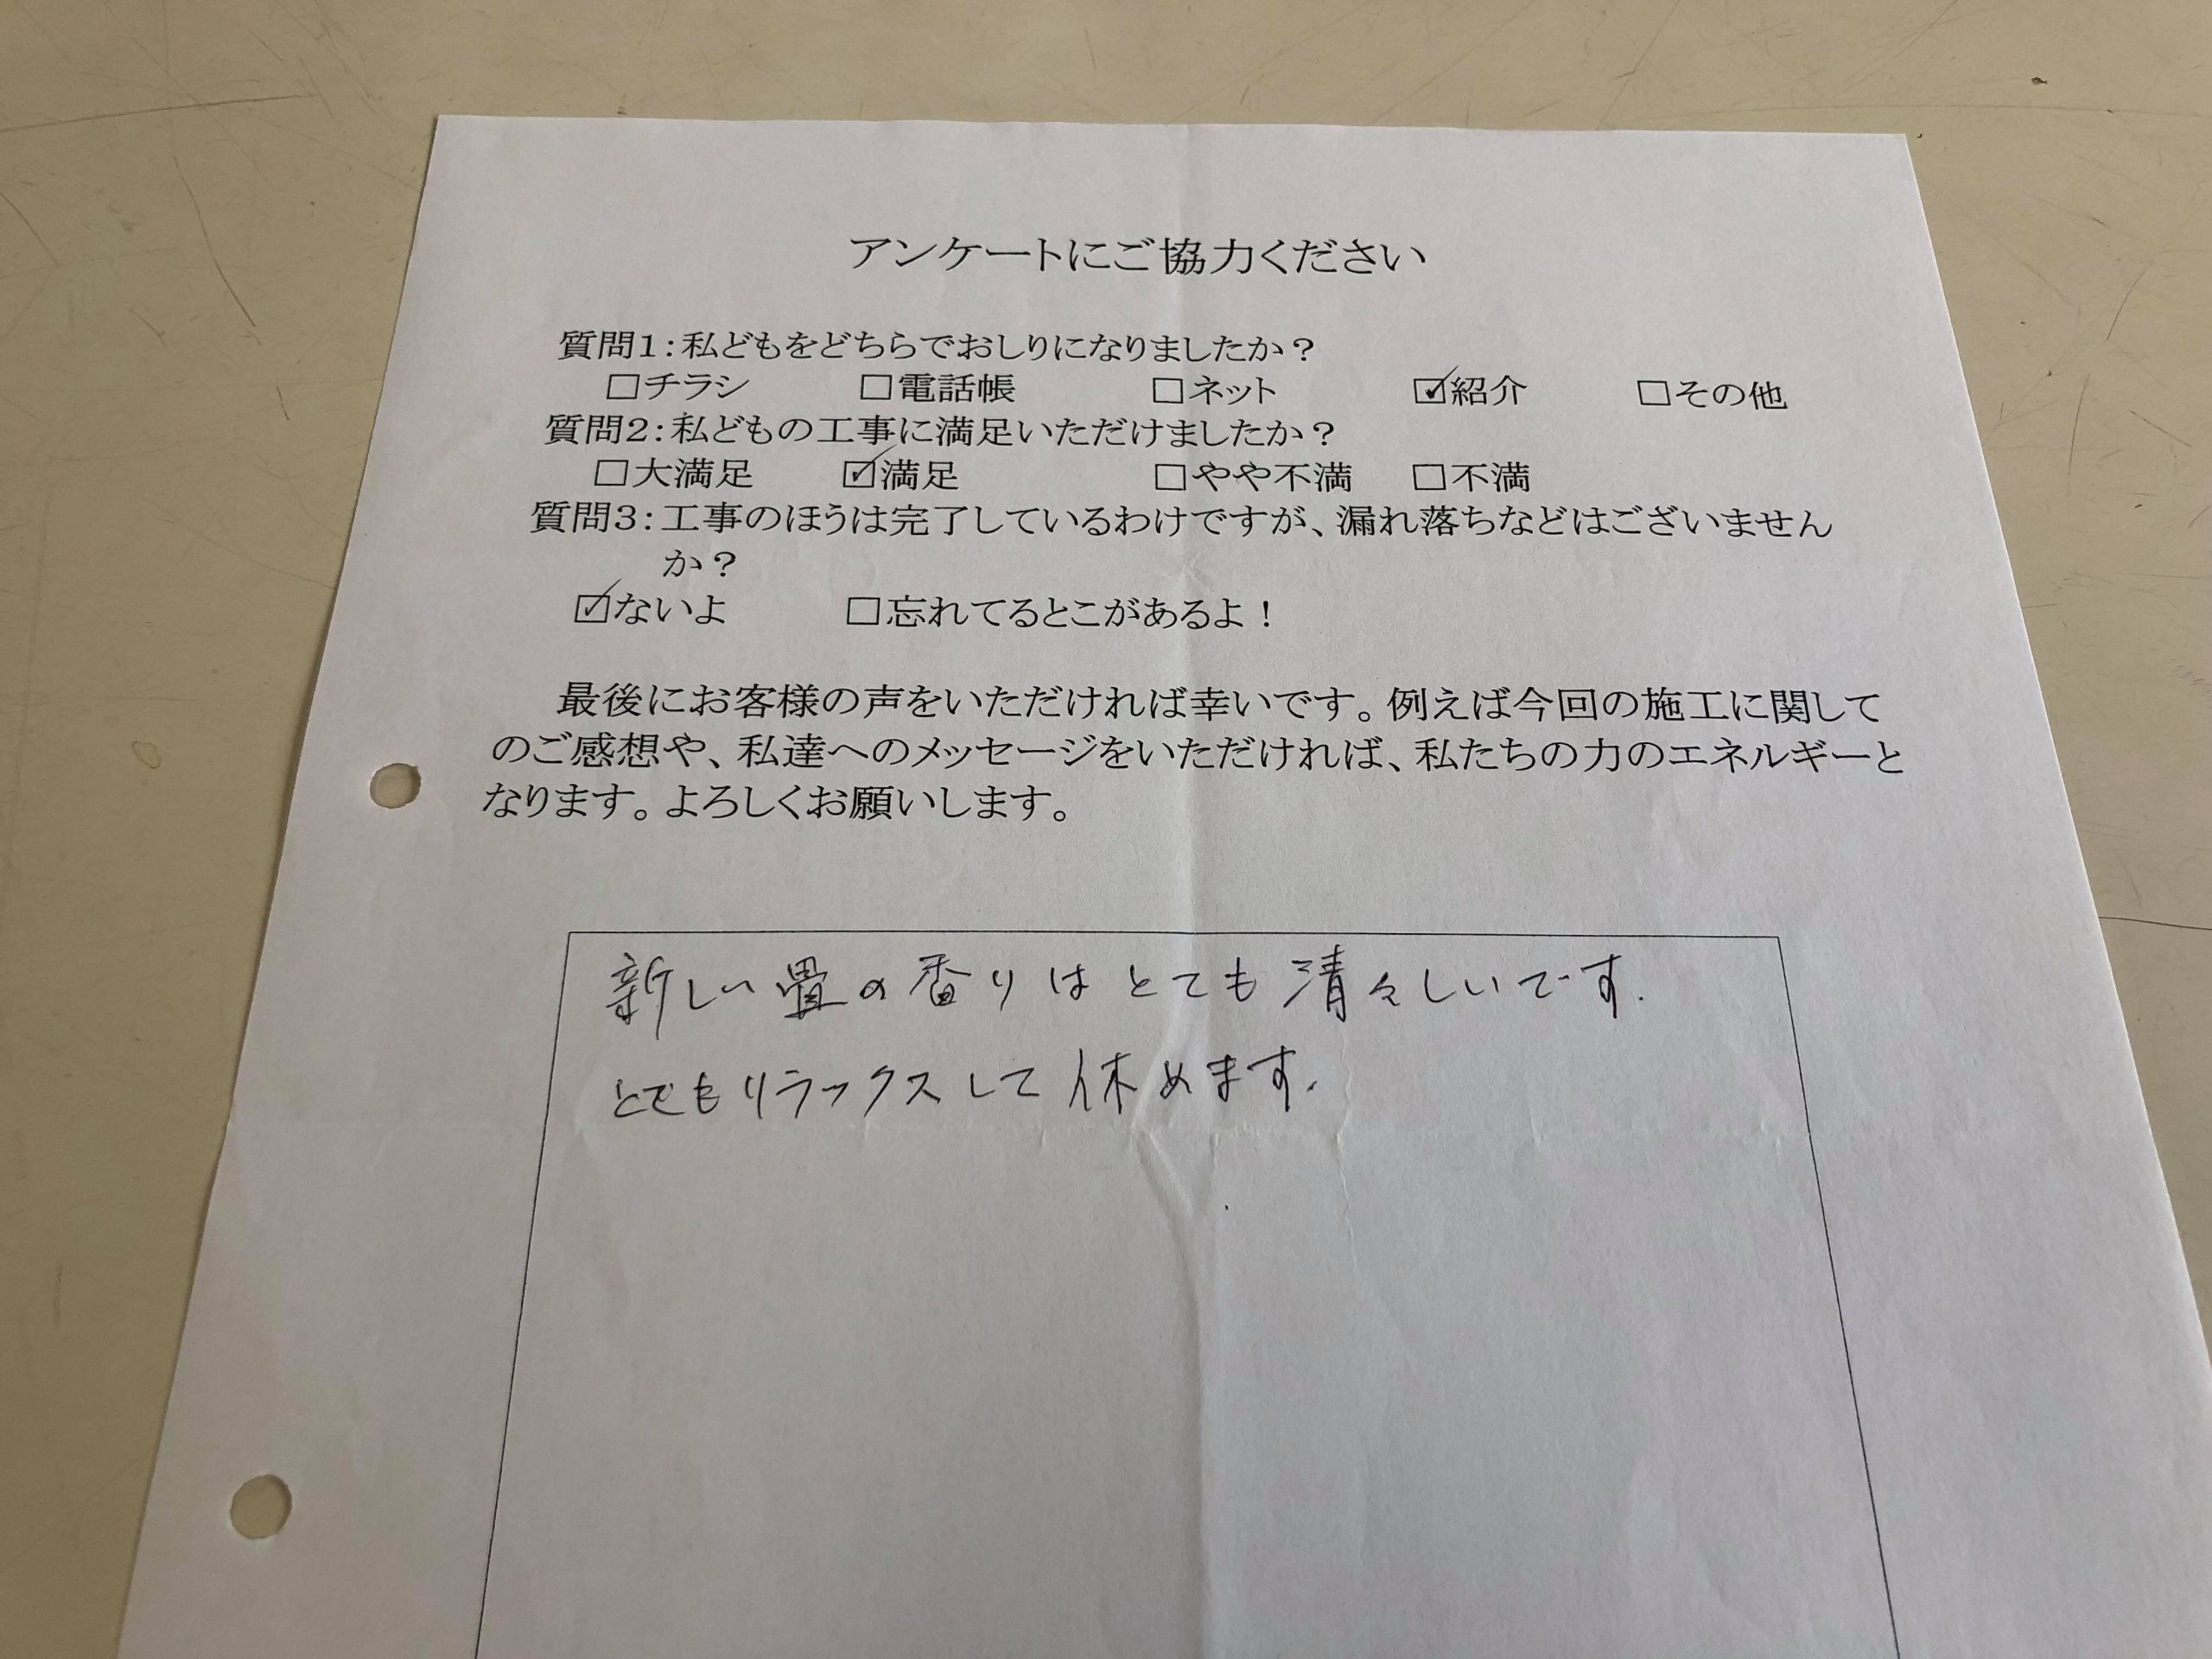 アンケートにご協力ください
質問1:私どもをどちらでおしりになりましたか?
□チラシ □電話帳 □ネット ☑紹介 □その他
質問2:私どもの工事に満足いただけましたか?
□大満足 ☑満足 □やや不満 □不満
質問3:工事のほうは完了しているわけですが、漏れ落ちなどはございません
か?
☑ないよ □忘れてるとこがあるよ!
最後にお客様の声をいただければ幸いです。例えば今回の施工に関して
のご感想や、私達へのメッセージをいただければ、私たちの力のエネルギーと
なります。よろしくお願いします。
新しい畳の香りはとても清々しいです.
とてもリラックスして休めます.